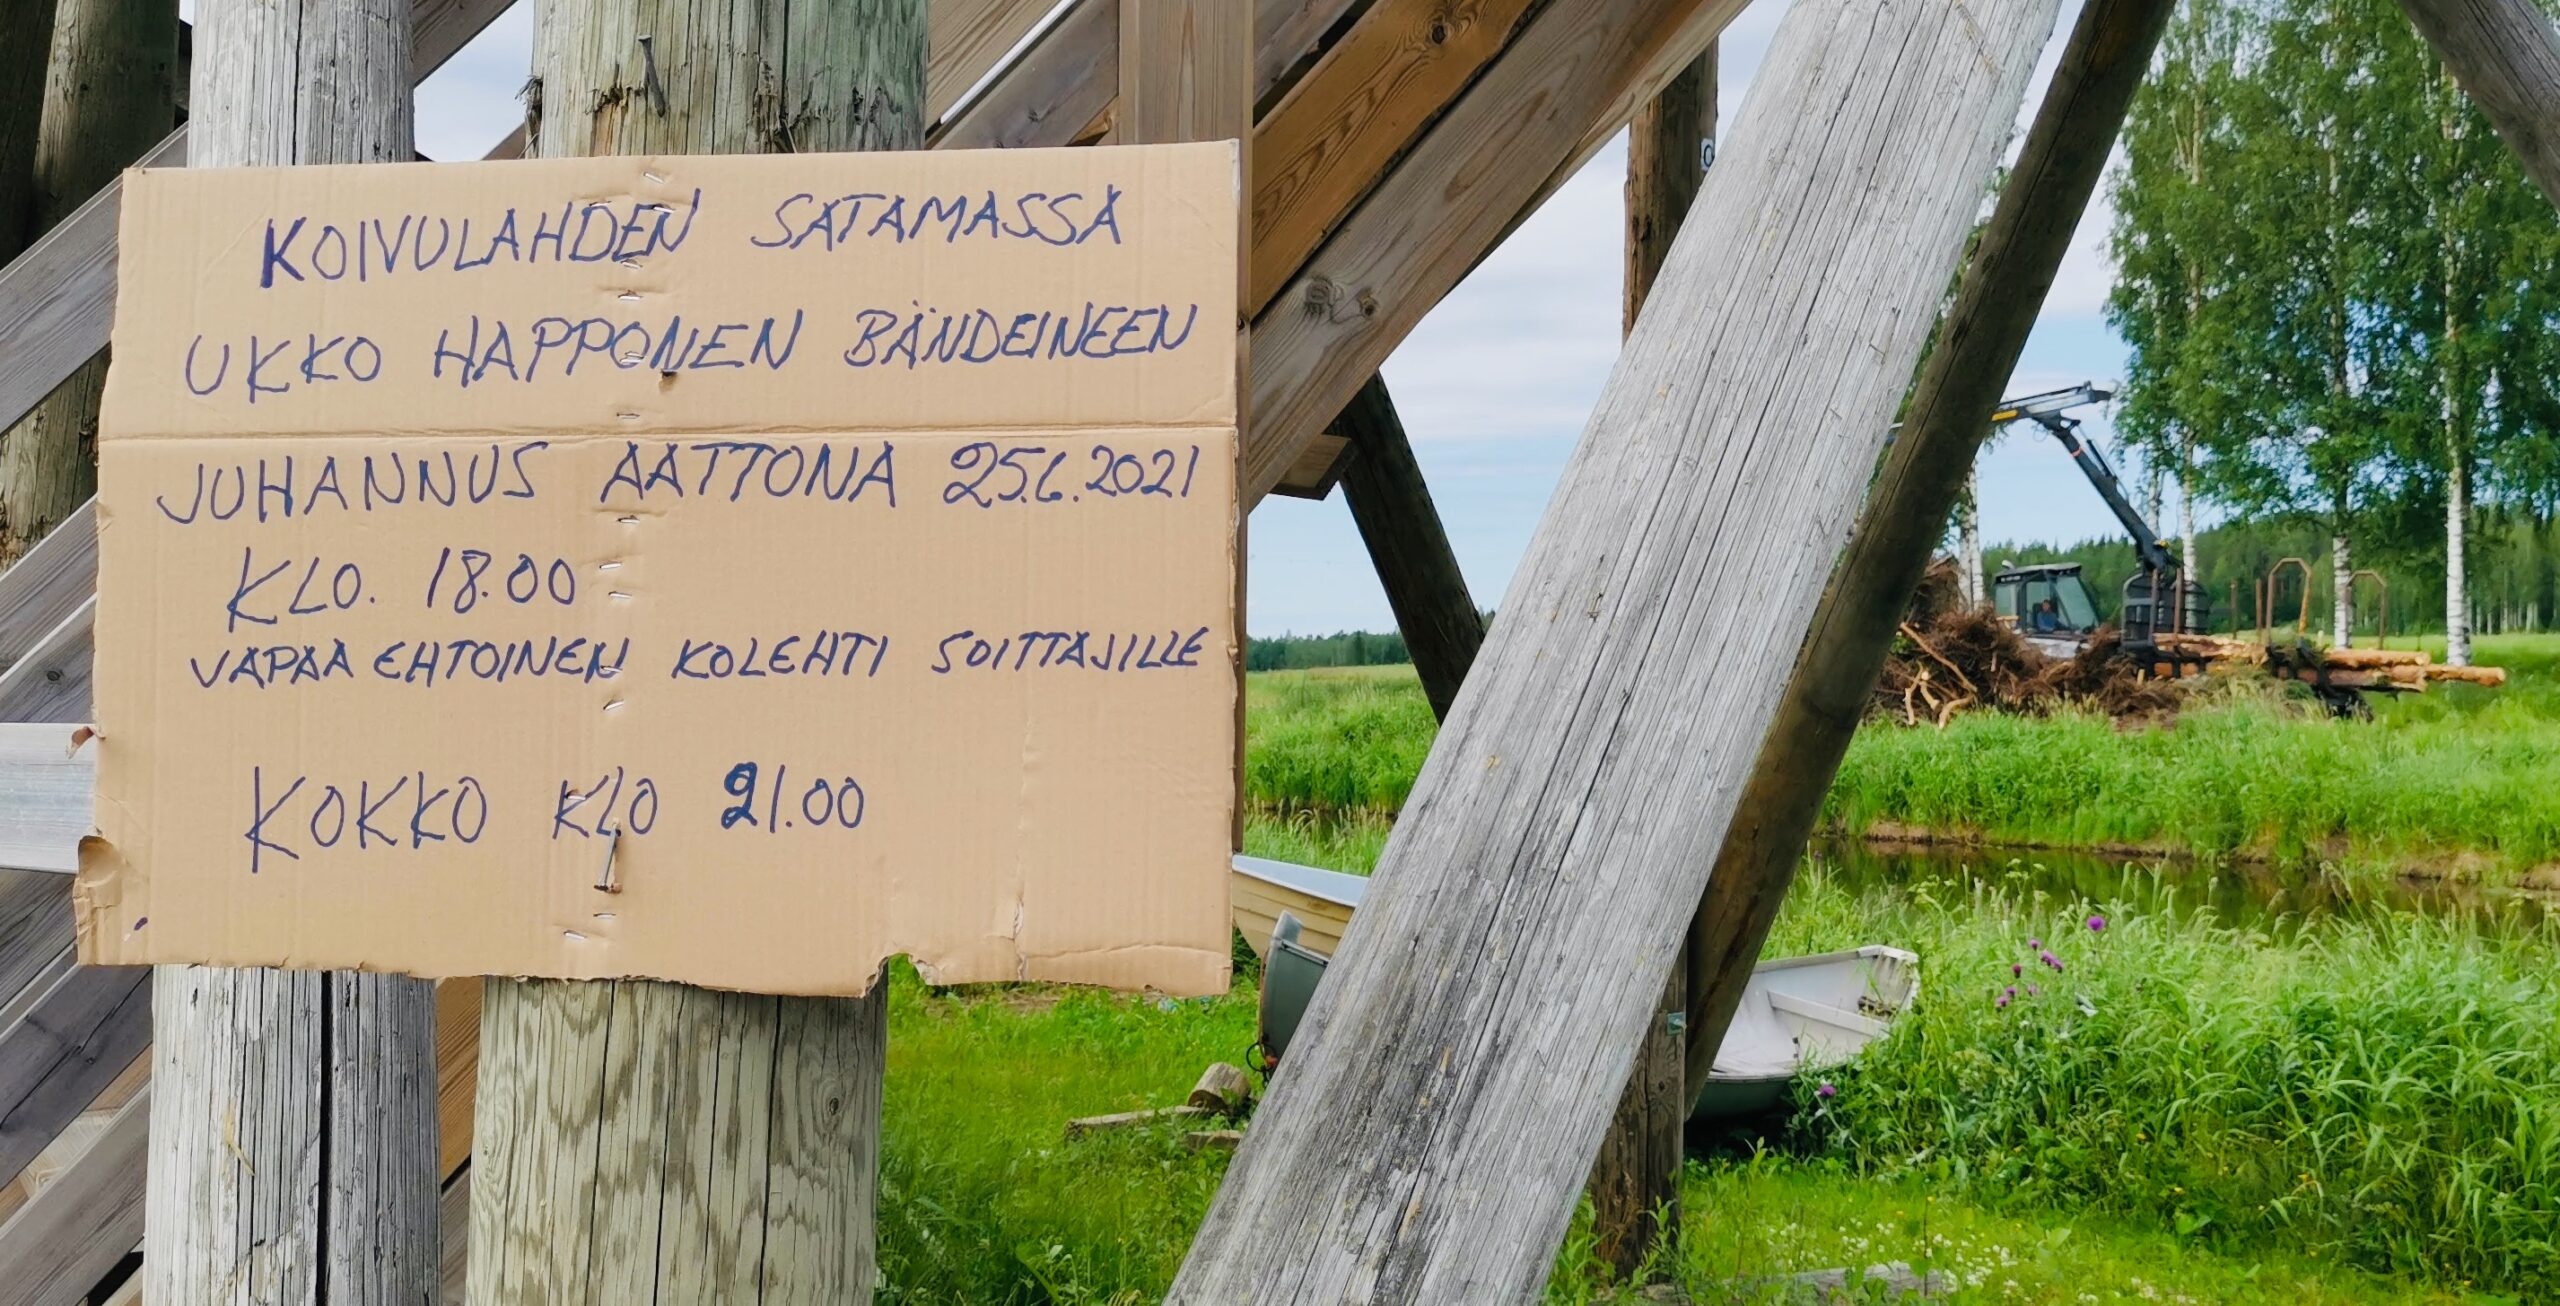 KOIVULAHDEN SATAMASSA
UKKO HAPPONEN BÄNDEINEEN
JUHANNUS AATTONA 25.6.2021
KLO. 18.00
VAPAA EHTOINEN KOLEHTI SOITTAJILLE
KOKKO KLO 21.00